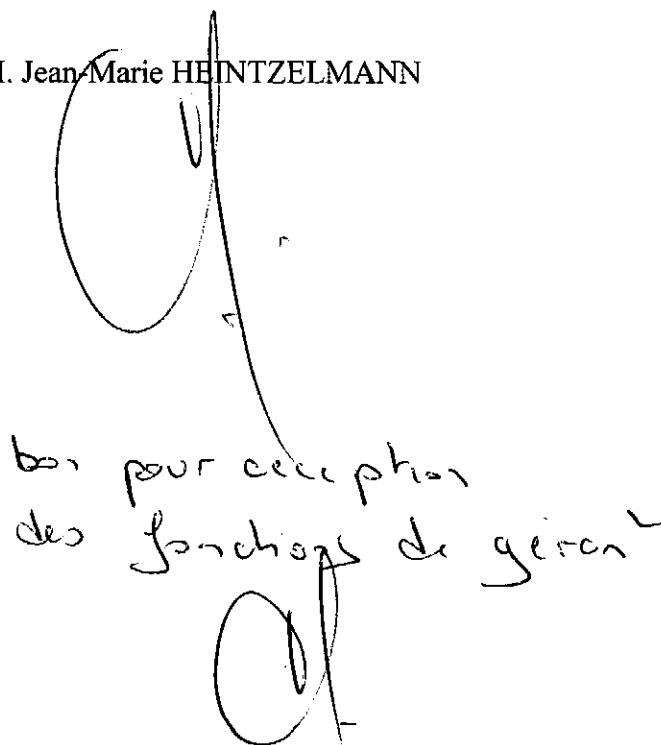 . Jean-Marie HEINTZELMANN
bon pour acceptation
des fonctions de gérant